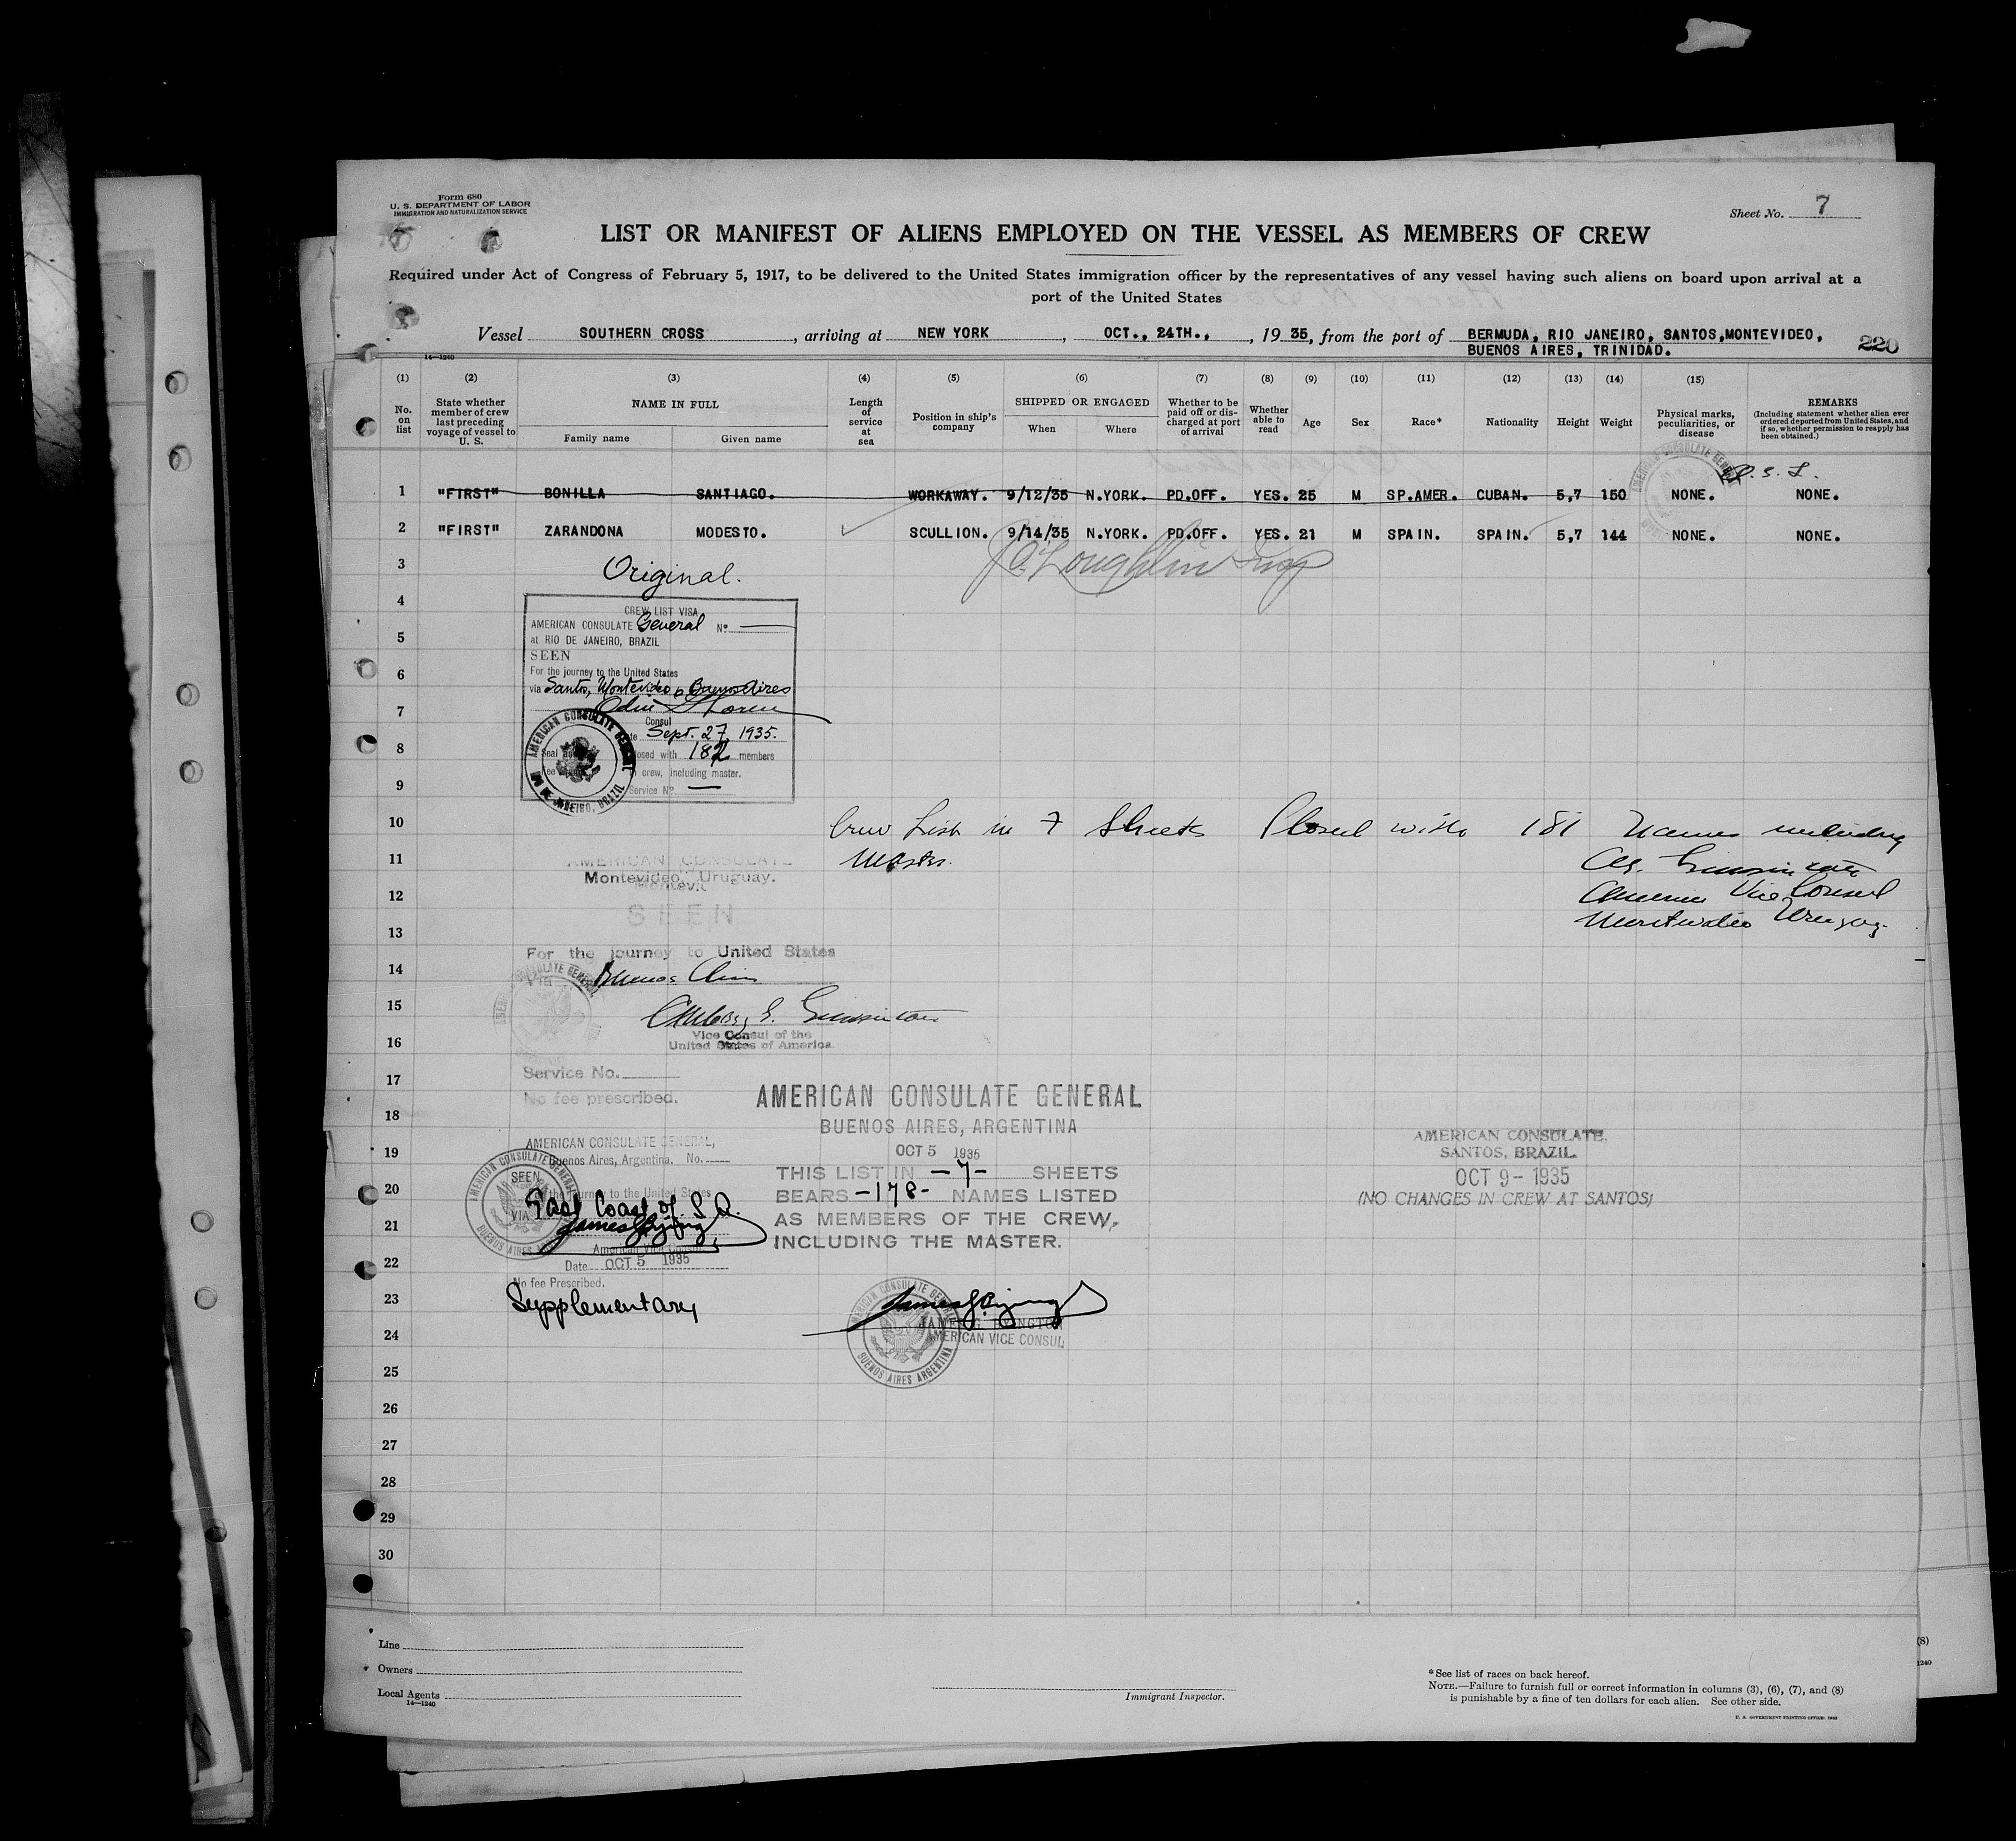 Form 680
U. S. DEPARTMENT OF LABOR
IMMIGRATION AND NATURALIZATION SERVICE
Sheet No. 7
LIST OR MANIFEST OF ALIENS EMPLOYED ON THE VESSEL AS MEMBERS OF CREW
Required under Act of Congress of February 5, 1917, to be delivered to the United States immigration officer by the representatives of any vessel having such aliens on board upon arrival at a
port of the United States
Vessel SOUTHERN CROSS, arriving at NEW YORK, OCT., 24TH., , 19 35, from the port of BERMUDA, RIO JANEIRO, SANTOS,MONTEVIDEO,
BUENOS AIRES, TRINIDAD.
220
14—1240
(1) (2) (3) (4) (5) (6) (7) (8) (9) (10) (11) (12) (13) (14) (15)
No. on list
State whether member of crew last preceding voyage of vessel to U. S.
NAME IN FULL
Family name
Given name
Length of service at sea
Position in ship's company
SHIPPED OR ENGAGED
When
Where
Whether to be paid off or discharged at port of arrival
Whether able to read
Age
Sex
Race*
Nationality
Height
Weight
Physical marks, peculiarities, or disease
REMARKS
(Including statement whether alien ever ordered deported from United States, and if so, whether permission to reapply has been obtained.)
1 "FIRST" BONILLA SANTIAGO. WORKAWAY. 9/12/35 N.YORK. PD.OFF. YES. 25 M SP.AMER. CUBAN. 5,7 150 NONE. NONE.
2 "FIRST" ZARANDONA MODESTO. SCULLION. 9/14/35 N.YORK. PD.OFF. YES. 21 M SPAIN. SPAIN. 5,7 144 NONE. NONE.
3
Original.
4
CREW LIST VISA
AMERICAN CONSULATE General No.
5
at RIO DE JANEIRO, BRAZIL
SEEN
6
For the journey to the United States
via Santos, Montevideo & Buenos Aires
7
Consul
Sept. 27, 1935.
8
closed with 182 members
crew, including master.
9
Service No.
AMERICAN CONSULATE GENERAL
RIO DE JANEIRO, BRAZIL
10
Crew List in 7 Sheets Closed with 181 Names including
11
Master.
AMERICAN CONSULATE
Montevideo, Uruguay.
12
American Vice Consul
SEEN
13
Montevideo Uruguay.
For the journey to United States
14
Via Buenos Aires
15
16
Vice Consul of the
United States of America
17
Service No.
No fee prescribed.
18
AMERICAN CONSULATE GENERAL
BUENOS AIRES, ARGENTINA
OCT 5 1935
THIS LIST IN -7- SHEETS
BEARS -178- NAMES LISTED
AS MEMBERS OF THE CREW,
INCLUDING THE MASTER.
19
AMERICAN CONSULATE GENERAL,
Buenos Aires, Argentina. No.
SEEN
20
the journey to the United States
VIA East Coast of S.A.
21
American Vice Consul
22
Date OCT 5 1935
No fee Prescribed.
23
Supplementary
AMERICAN CONSULATE.
SANTOS, BRAZIL.
OCT 9 - 1935
(NO CHANGES IN CREW AT SANTOS)
JAMES G. BYINGTON
24
AMERICAN VICE CONSUL
AMERICAN CONSULATE GENERAL
BUENOS AIRES ARGENTINA
25
26
27
28
29
30
Line
Owners
Local Agents
14—1240
Immigrant Inspector.
*See list of races on back hereof.
NOTE.—Failure to furnish full or correct information in columns (3), (6), (7), and (8)
is punishable by a fine of ten dollars for each alien. See other side.